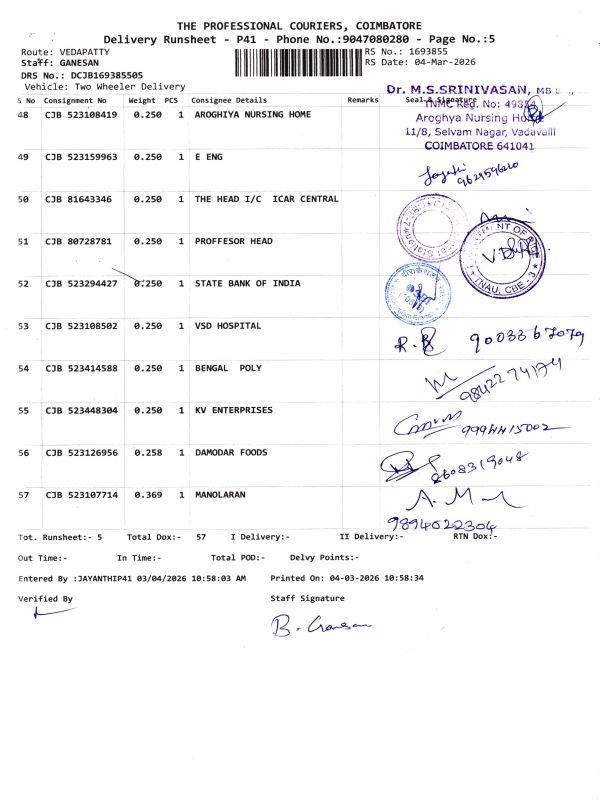 THE PROFESSIONAL COURIERS, COIMBATORE
Delivery Runsheet - P41 - Phone No.:9047080280 - Page No.:5
Route: VEDAPATTY RS No.: 1693855
Staff: GANESAN RS Date: 04-Mar-2026
DRS No.: DCJB169385505
Vehicle: Two Wheeler Delivery
Dr. M.S.SRINIVASAN, MB
S No Consignment No Weight PCS Consignee Details Remarks Seal & Signature
TNMC Reg. No: 49354
48 CJB 523108419 0.250 1 AROGHIYA NURSING HOME
Aroghya Nursing Home
11/8, Selvam Nagar, Vadavalli
COIMBATORE 641041
49 CJB 523159963 0.250 1 E ENG
50 CJB 81643346 0.250 1 THE HEAD I/C ICAR CENTRAL
51 CJB 80728781 0.250 1 PROFFESOR HEAD
TNAU, CBE - 3
52 CJB 523294427 0.250 1 STATE BANK OF INDIA
53 CJB 523108502 0.250 1 VSD HOSPITAL
9003367079
54 CJB 523414588 0.250 1 BENGAL POLY
9842274174
55 CJB 523448304 0.250 1 KV ENTERPRISES
56 CJB 523126956 0.258 1 DAMODAR FOODS
8608319048
57 CJB 523107714 0.369 1 MANOLARAN
A. M
9894022304
Tot. Runsheet:- 5 Total Dox:- 57 I Delivery:- II Delivery:- RTN Dox:-
Out Time:- In Time:- Total POD:- Delvy Points:-
Entered By :JAYANTHIP41 03/04/2026 10:58:03 AM Printed On: 04-03-2026 10:58:34
Verified By Staff Signature
B. Ganesan